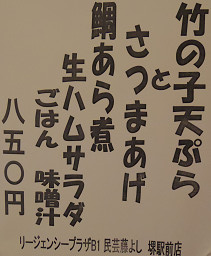 竹の子天ぷら
と
さつまあげ
鯛あら煮
生ハムサラダ
ごはん 味噌汁
八五〇円
リージェンシープラザB1 民芸藤よし 堺駅前店